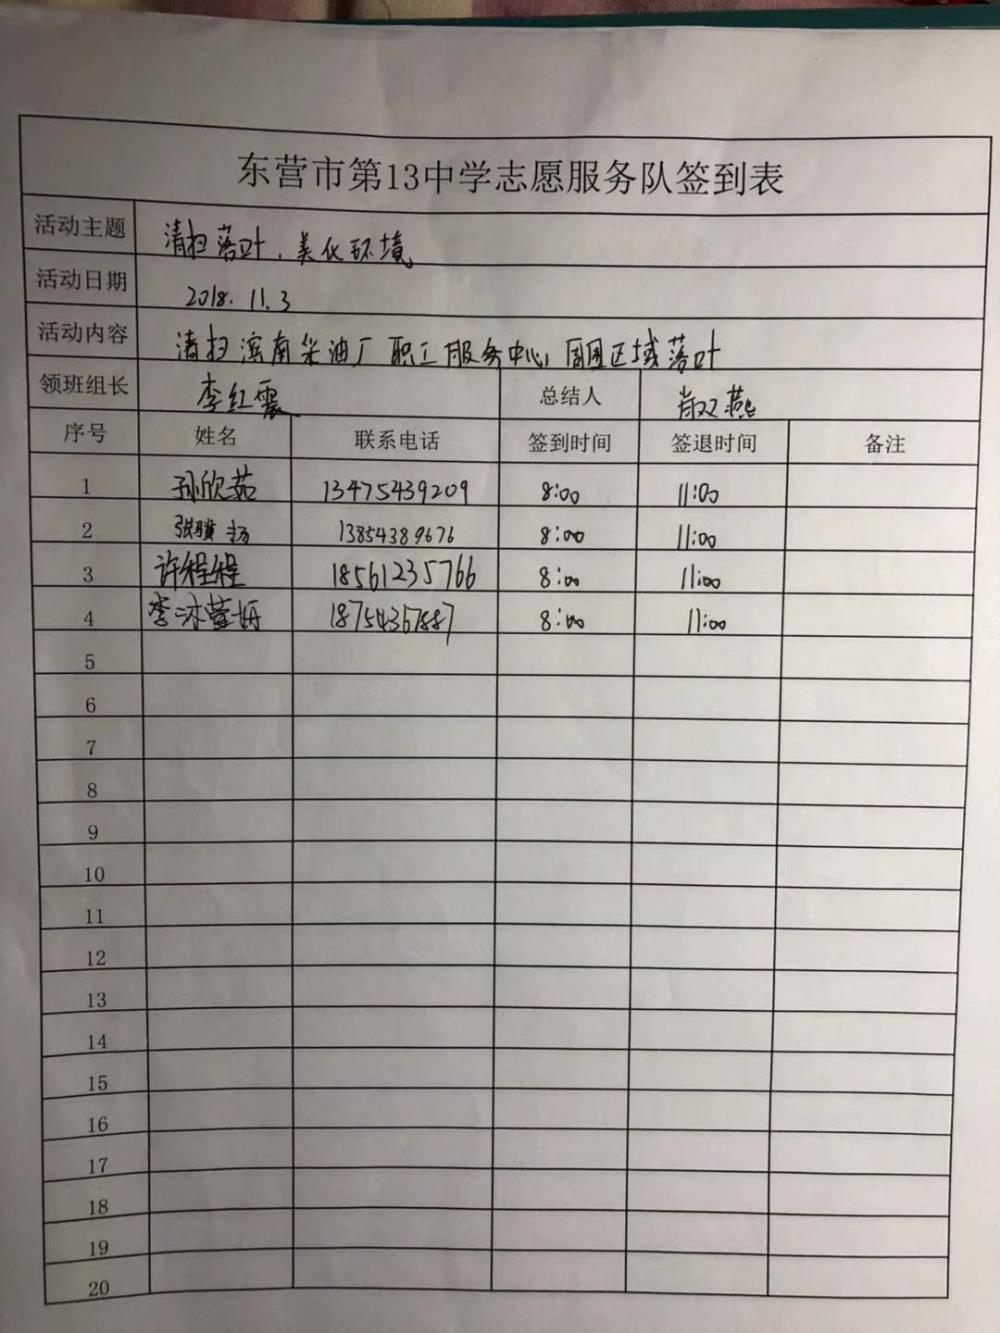 东营市第13中学志愿服务队签到表
活动主题 清扫落叶、美化环境
活动日期 2018.11.3
活动内容 清扫滨南采油厂职工服务中心周围区域落叶
领班组长 李红霞 总结人 肖双燕
序号 姓名 联系电话 签到时间 签退时间 备注
1 孙欣茹 13475439209 8:00 11:00
2 张 扬 13854389676 8:00 11:00
3 许程程 18561235766 8:00 11:00
4 李沐萱妍 8:00 11:00
5
6
7
8
9
10
11
12
13
14
15
16
17
18
19
20